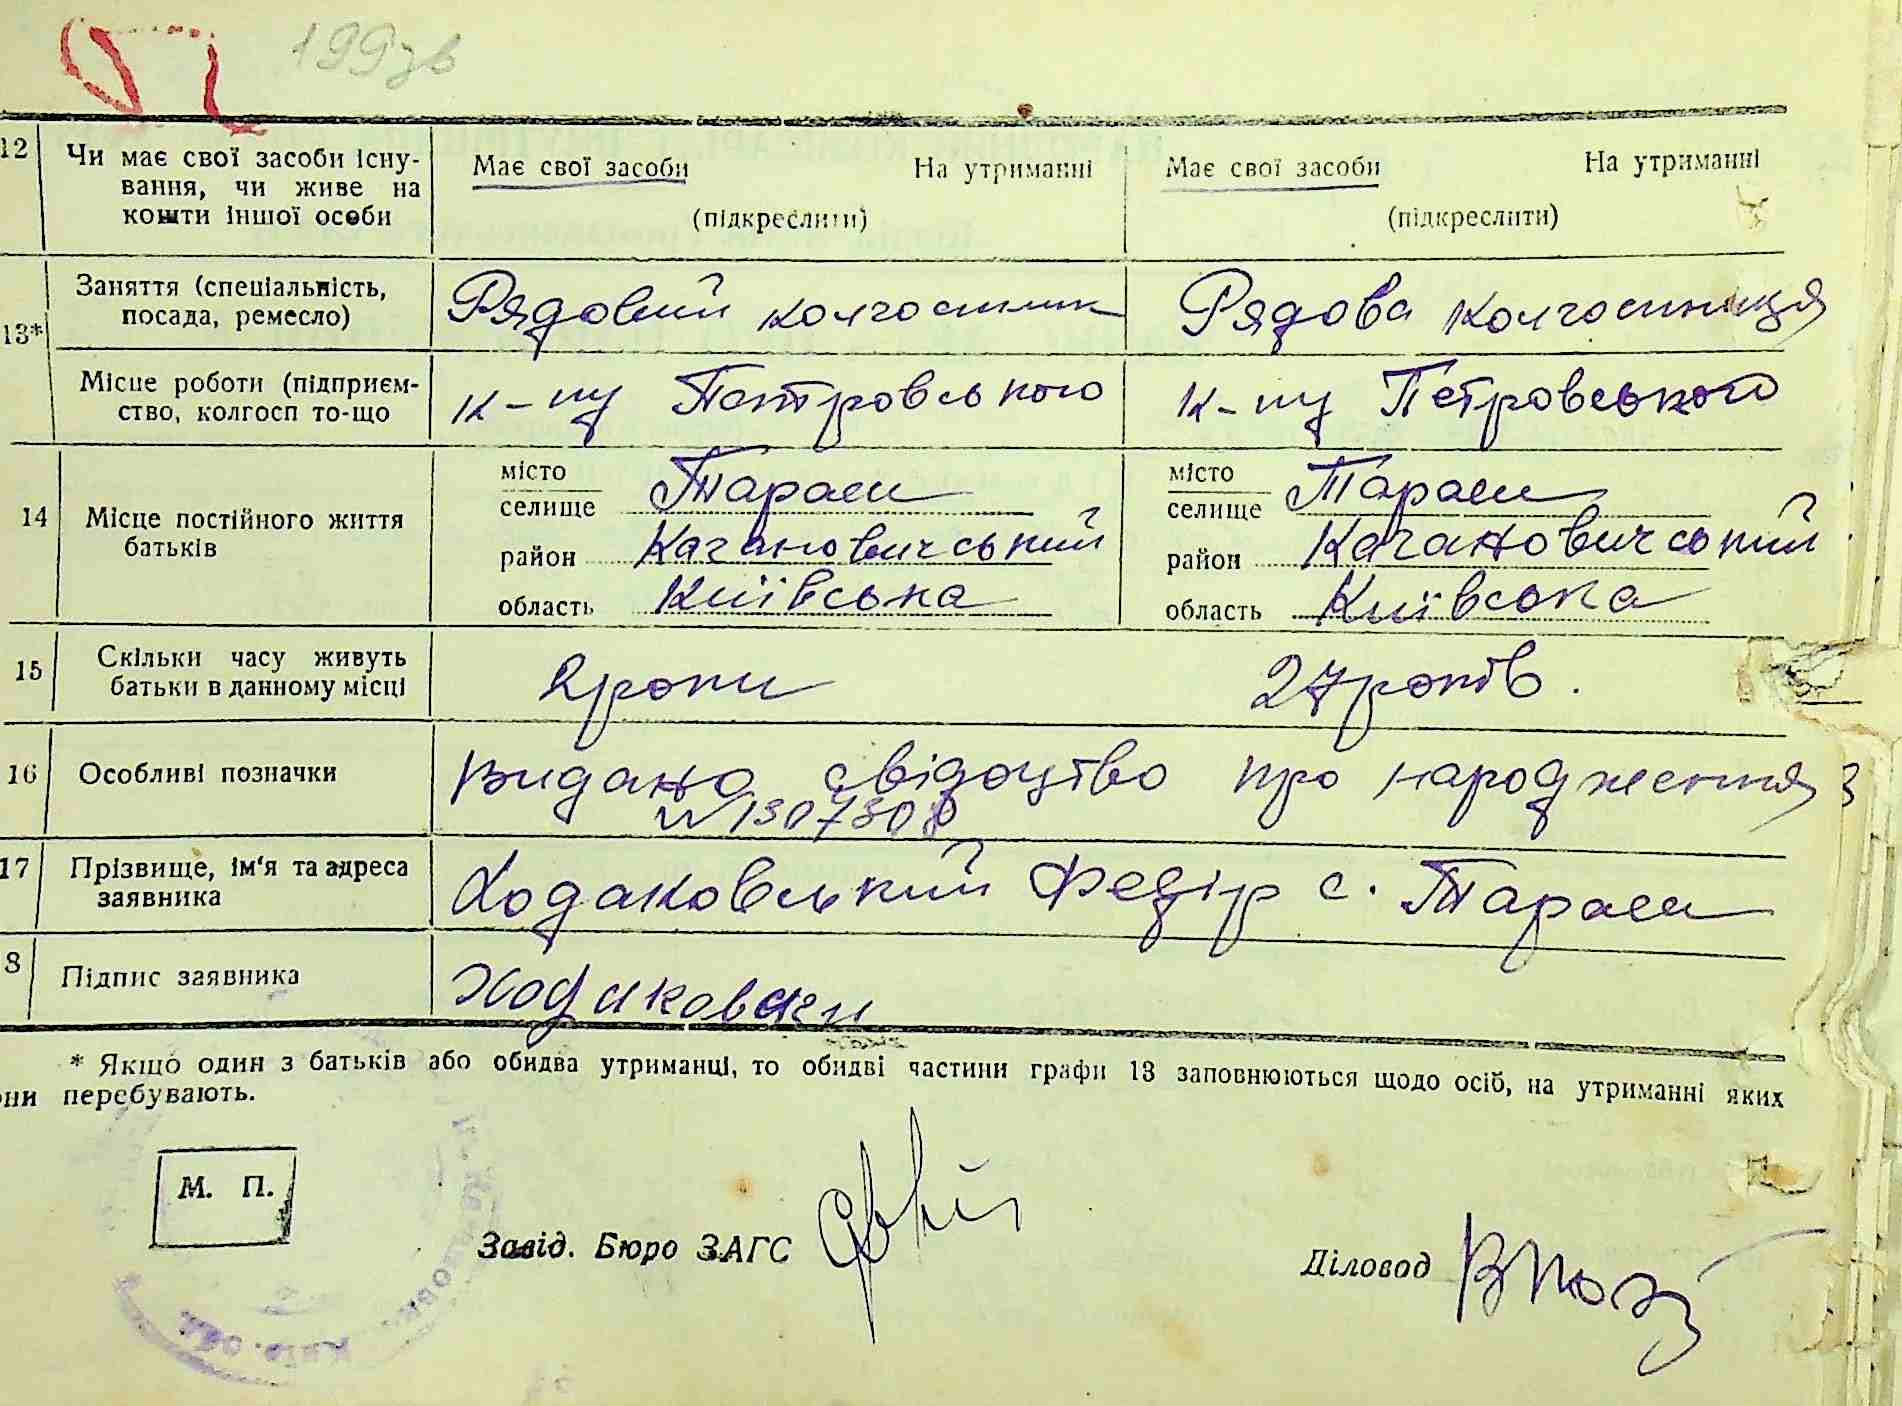 199зв
12 Чи має свої засоби існу-
вання, чи живе на
кошти іншої особи
Має свої засоби На утриманні
(підкреслити)
Має свої засоби На утриманні
(підкреслити)
13* Заняття (спеціальність,
посада, ремесло)
Рядовий колгоспник
Рядова колгоспниця
Місце роботи (підприєм-
ство, колгосп то-що
к-пу Петровського
к-пу Петровського
14 Місце постійного життя
батьків
місто
селище Тараси
район Кагановичський
область Київська
місто
селище Тараси
район Кагановичський
область Київська
15 Скільки часу живуть
батьки в данному місці
2 роки
27 років.
16 Особливі позначки
Видано свідоцтво про народження з
17 Прізвище, ім'я та адреса
заявника
Ходаковський Федір с. Тараси
8 Підпис заявника
Ходаковски
* Якщо один з батьків або обидва утриманці, то обидві частини графи 13 заповнюються щодо осіб, на утриманні яких
они перебувають.
М. П.
Завід. Бюро ЗАГС
Діловод